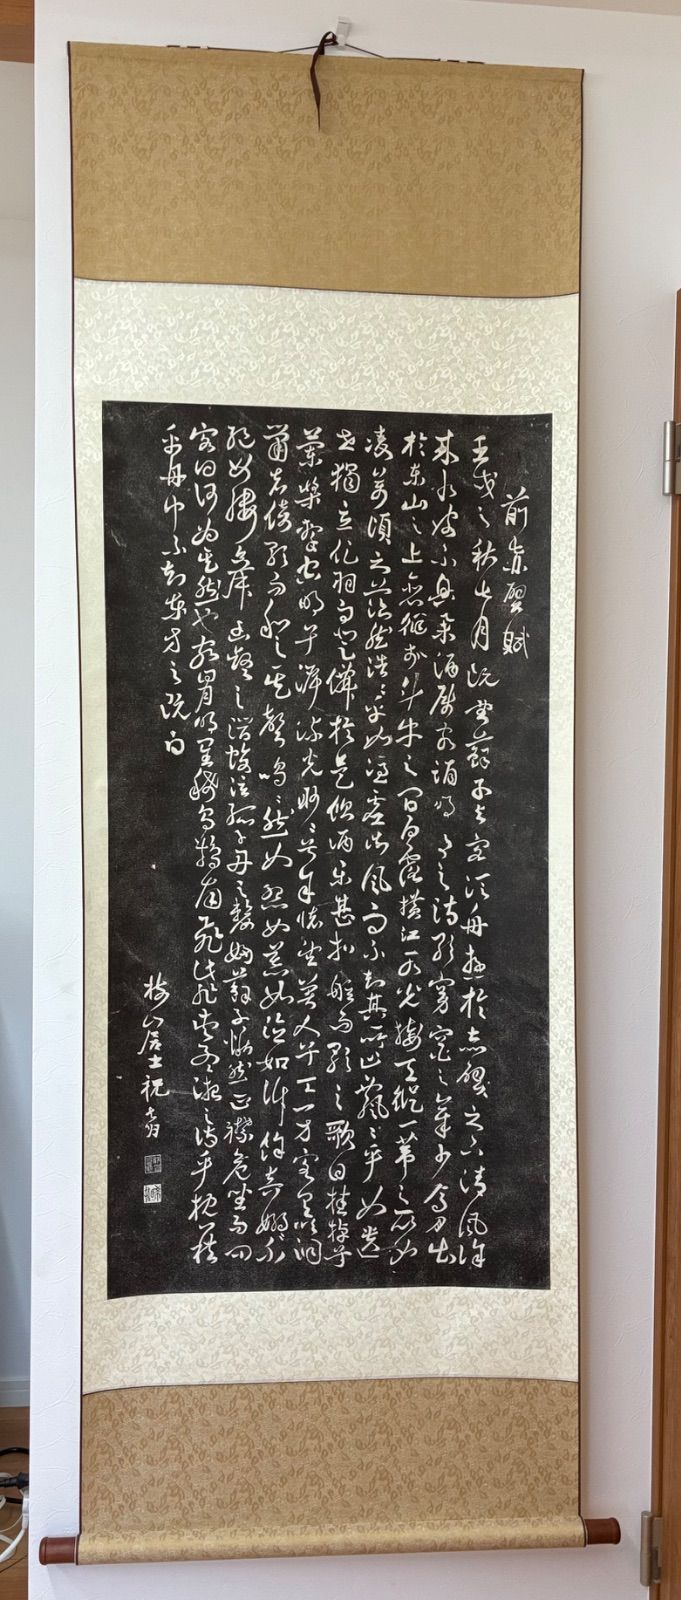 前赤壁賦
壬戌之秋七月既望蘇子與客泛舟遊於赤壁之下清風徐
來水波不興舉酒屬客誦明月之詩歌窈窕之章少焉月出
於東山之上徘徊於斗牛之間白露橫江水光接天縱一葦之所如
凌萬頃之茫然浩浩乎如馮虛御風而不知其所止飄飄乎如遺
世獨立化羽而登僊於是飲酒樂甚扣舷而歌之歌曰桂棹兮
蘭槳擊空明兮泝流光渺渺兮予懷望美人兮天一方客有吹洞
簫者倚歌而和之其聲嗚嗚然如怨如慕如泣如訴餘音嫋嫋不
絕如縷舞幽壑之潛蛟泣孤舟之嫠婦蘇子愀然正襟危坐而問
客曰何為其然也客曰月明星稀烏鵲南飛此非孟德之詩乎枕藉
乎舟中不知東方之既白
枝山居士祝允明